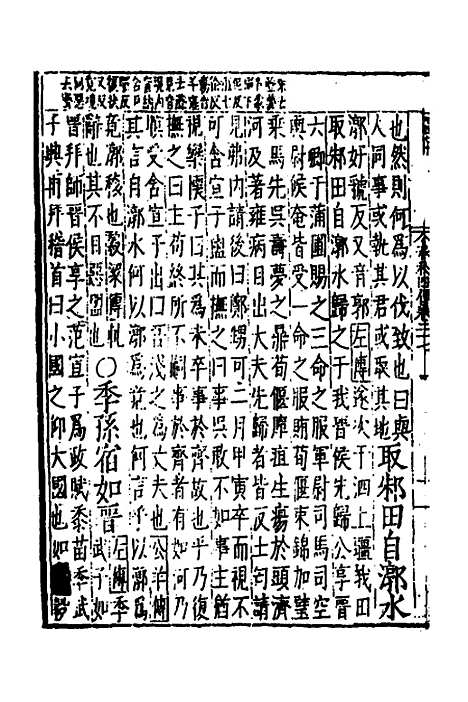 也然則何為以伐致也曰與
人同事或執其君或取其地
取邾田自漷水
漷好號反又音郭左傳遂次于泗上疆我田
取邾田自漷水歸之于我晉侯先歸公享晉
六卿于蒲圃賜之三命之服軍尉司馬司空
輿尉候奄皆受一命之服賄荀偃束錦加璧
乘馬先吳壽夢之鼎荀偃癉疽生瘍於頭濟
河及著雍病目出大夫先歸者皆反士匄請
見弗內請後曰鄭甥可二月甲寅卒而視不
可含宣子盥而撫之曰事吳敢不如事主猶
視欒懷子曰其為未卒事於齊故也乎乃復
撫之曰主苟終所不嗣事於齊者有如河乃
瞑受含宣子出曰吾淺之為丈夫也公羊傳
其言自漷水何以漷為竟也何言乎以漷為
竟漷移也穀梁傳軋
辭也其不日惡盟也
○季孫宿如晉
左傳季
武子如
晉拜師晉侯享之范宣子為政賦黍苗季武
子興再拜稽首曰小國之仰大國也如